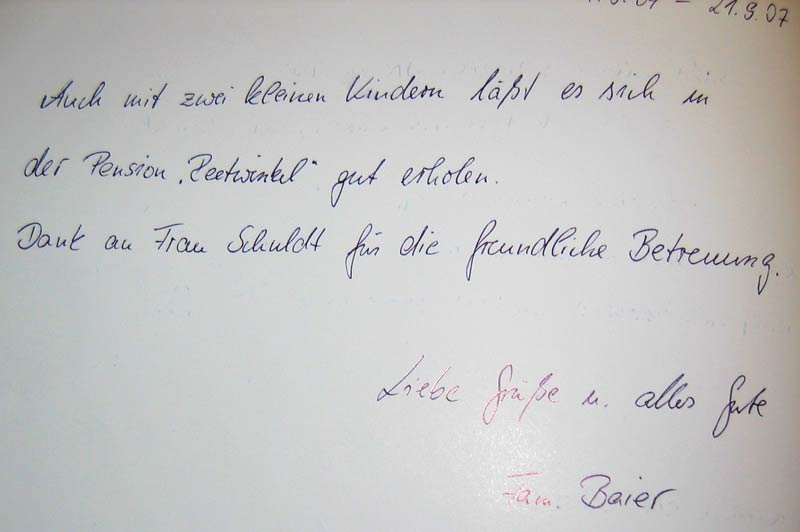 – 21.9.07
Auch mit zwei kleinen Kindern läßt es sich in
der Pension „Peetwinkel“ gut erholen.
Dank an Frau Schuldt für die freundliche Betreuung.
Liebe Grüße u. alles Gute
Fam. Baier